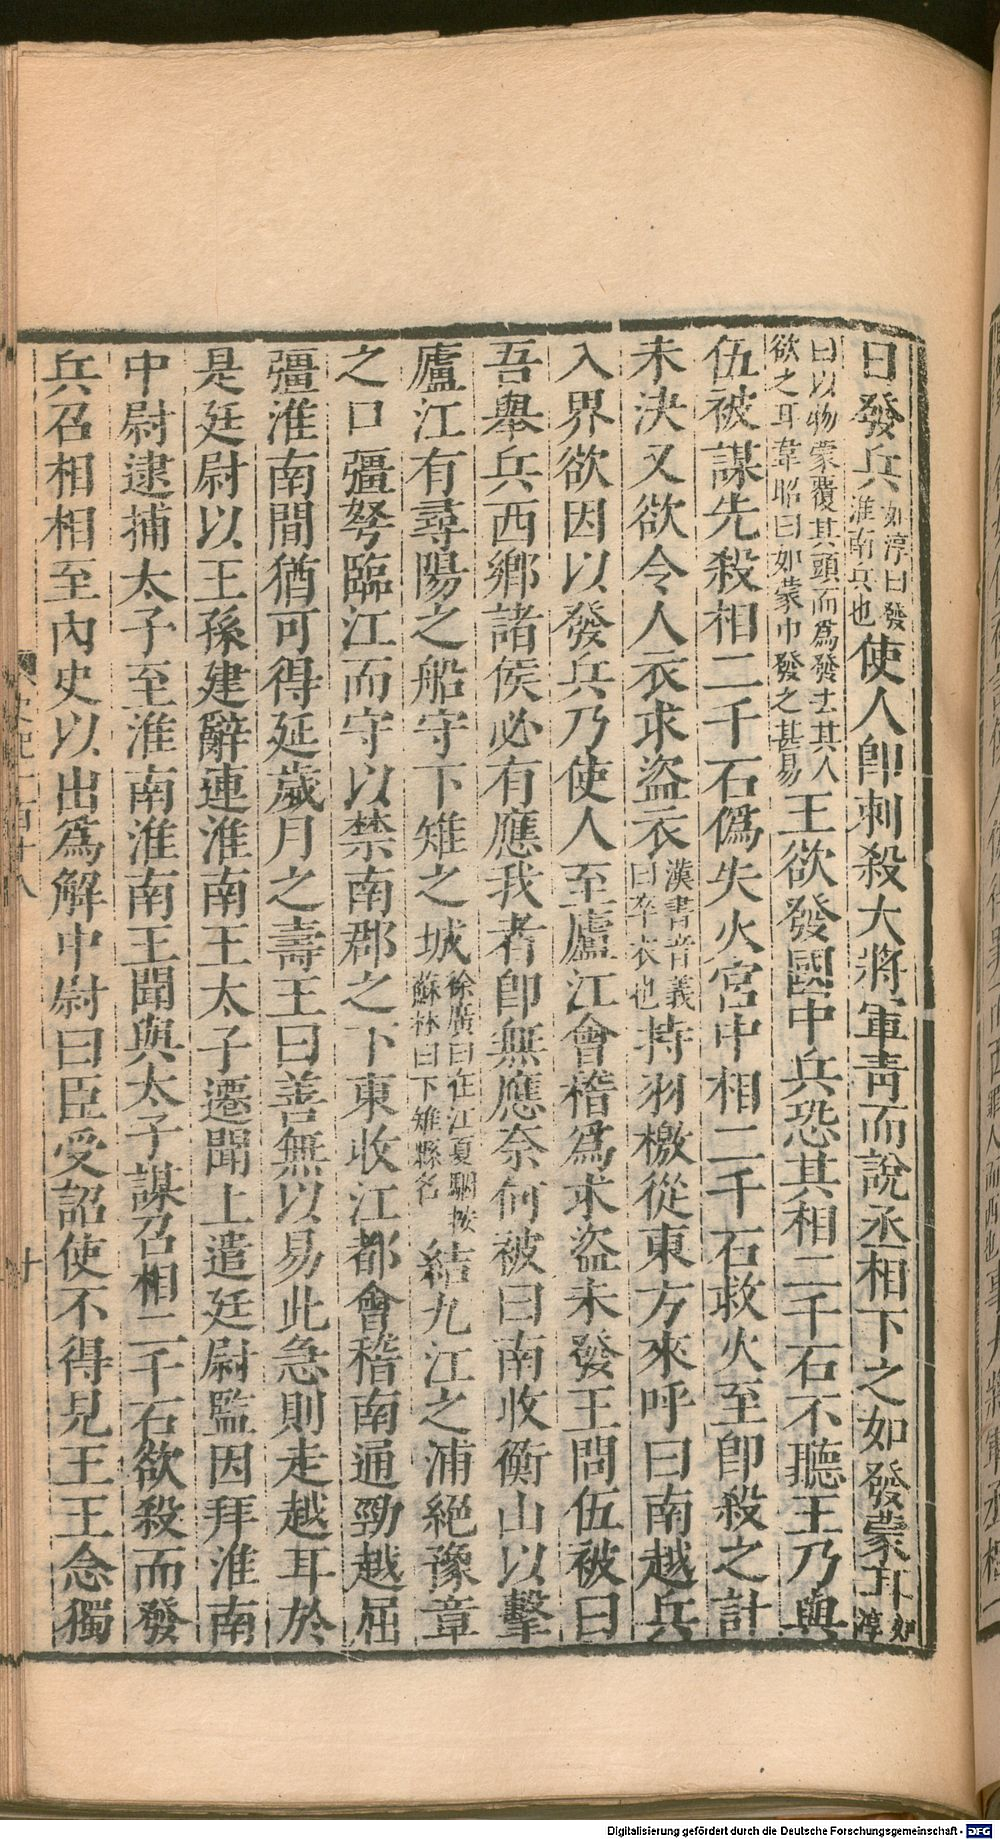 日發兵如淳曰發淮南兵也使人卽刺殺大將軍靑而說丞相下之如發蒙耳如淳
曰以物蒙覆其頭而爲發去其人欲之耳韋昭曰如蒙巾發之甚易王欲發國中兵恐其相二千石不聽王乃與
伍被謀先殺相二千石僞失火宮中相二千石救火至卽殺之計
未決又欲令人衣求盜衣漢書音義曰卒衣也持羽檄從東方來呼曰南越兵
入界欲因以發兵乃使人至廬江會稽爲求盜未發王問伍被曰
吾舉兵西鄕諸侯必有應我者卽無應奈何被曰南收衡山以擊
廬江有尋陽之船守下雉之城徐廣曰在江夏駰按蘇林曰下雉縣名結九江之浦絕豫章
之口彊弩臨江而守以禁南郡之下東收江都會稽南通勁越屈
彊淮南間猶可得延歲月之壽王曰善無以易此急則走越耳於
是廷尉以王孫建辭連淮南王太子遷聞上遣廷尉監因拜淮南
中尉逮捕太子至淮南淮南王聞與太子謀召相二千石欲殺而發
兵召相相至內史以出爲解中尉曰臣受詔使不得見王王念獨
史記一百十八
十
Digitalisierung gefördert durch die Deutsche Forschungsgemeinschaft - DFG